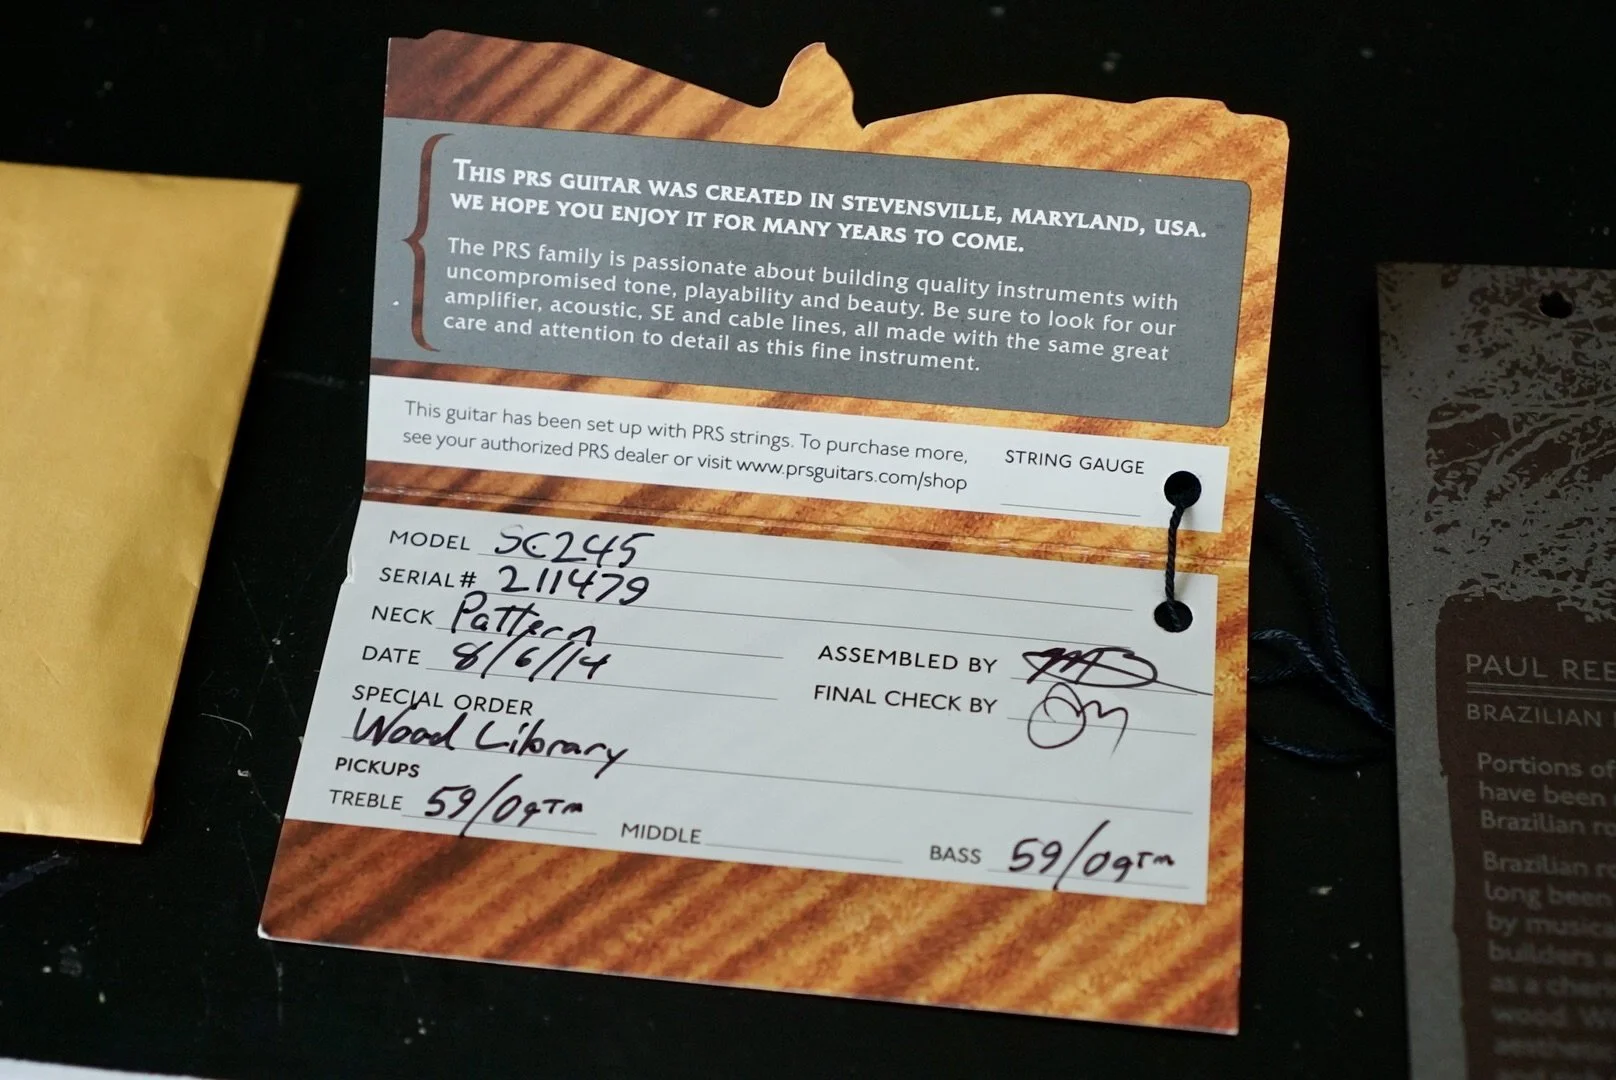 THIS PRS GUITAR WAS CREATED IN STEVENSVILLE, MARYLAND, USA.
WE HOPE YOU ENJOY IT FOR MANY YEARS TO COME.
The PRS family is passionate about building quality instruments with
uncompromised tone, playability and beauty. Be sure to look for our
amplifier, acoustic, SE and cable lines, all made with the same great
care and attention to detail as this fine instrument.
This guitar has been set up with PRS strings. To purchase more,
see your authorized PRS dealer or visit www.prsguitars.com/shop
STRING GAUGE
MODEL SC245
SERIAL# 211479
NECK Pattern
DATE 8/6/14
ASSEMBLED BY
FINAL CHECK BY
SPECIAL ORDER
Wood Library
PICKUPS
TREBLE 59/09TM MIDDLE BASS 59/09TM
PAUL REE
BRAZILIAN
Portions of
have been
Brazilian ro
Brazilian ro
long been
by musica
builders a
as a cheri
wood. W
aesthetic